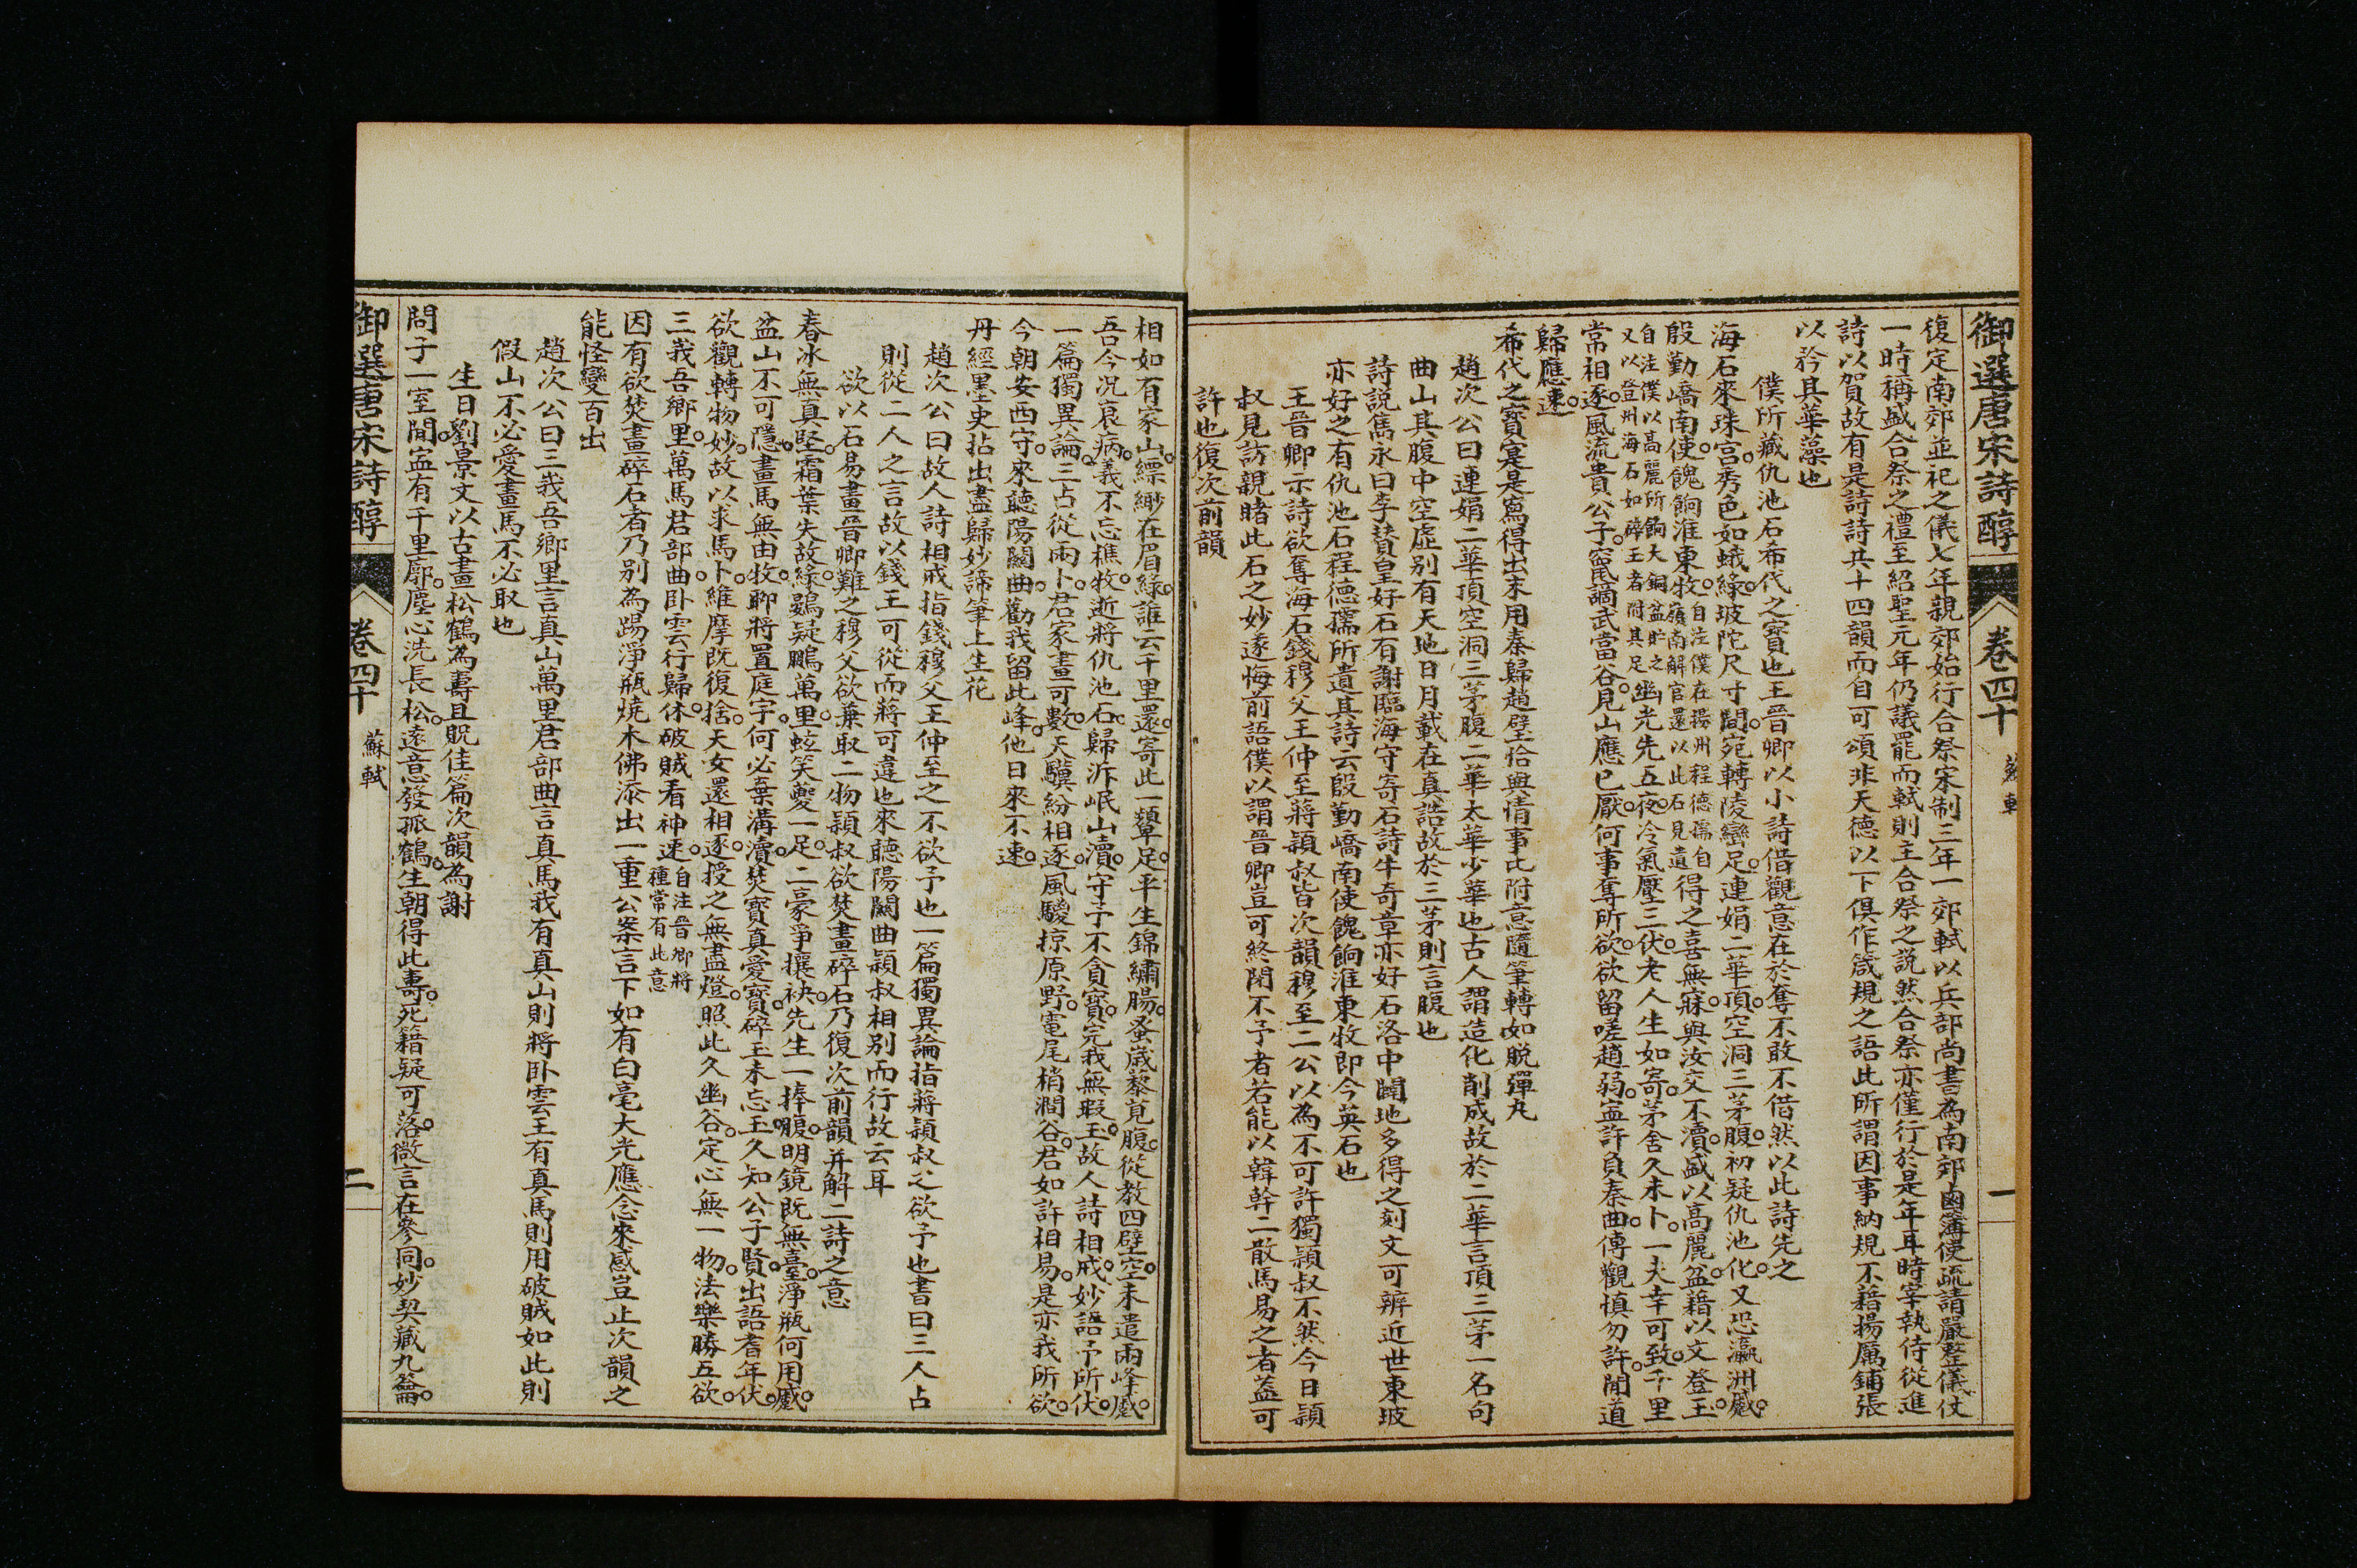 御選唐宋詩醇 卷四十 蘇軾 一
復定南郊並祀之儀七年親郊始行合祭宋制三年一郊軾以兵部尚書為南郊鹵簿使疏請嚴整儀仗
一時稱盛合祭之禮至紹聖元年仍議罷而軾則主合祭之說然合祭亦僅行於是年耳時宰執侍從進
詩以賀故有是詩詩共十四韻而自可頌非天德以下俱作箴規之語此所謂因事納規不藉揚厲鋪張
以矜其華藻也
僕所藏仇池石希代之寶也王晉卿以小詩借觀意在於奪不敢不借然以此詩先之
海石來珠宮秀色如蛾綠坡陀尺寸間宛轉陵巒足連娟二華頂空洞三茅腹初疑仇池化又恐瀛洲蹙
殷勤嶠南使餽餉淮東牧自注僕在揚州程德孺自嶺南解官還以此石見遺得之喜無寐與汝交不瀆盛以高麗盆藉以文登玉
自注僕以高麗所餉大銅盆貯之又以登州海石如碎玉者附其足幽光先五夜冷氣壓三伏老人生如寄茅舍久未卜一夫幸可致千里
常相逐風流貴公子竄謫武當谷見山應已厭何事奪所欲欲留嗟趙弱寍許負秦曲傳觀慎勿許間道
歸應速
希代之寶寔是寫得出末用秦歸趙璧恰與情事比附意隨筆轉如脫彈丸
趙次公曰連娟二華頂空洞三茅腹二華太華少華也古人謂造化削成故於二華言頂三茅一名句
曲山其腹中空虛别有天地日月載在真誥故於三茅則言腹也
詩說雋永曰李贊皇好石有謝臨海守寄石詩牛奇章亦好石洛中闢地多得之刻文可辨近世東坡
亦好之有仇池石程德孺所遺其詩云殷勤嶠南使餽餉淮東牧即今英石也
王晉卿示詩欲奪海石錢穆父王仲至蔣穎叔皆次韻穆至二公以為不可許獨穎叔不然今日穎
叔見訪親睹此石之妙遂悔前語僕以謂晉卿豈可終閉不予者若能以韓幹二散馬易之者蓋可
許也復次前韻
相如有家山縹緲在眉綠誰云千里還寄此一顰足平生錦繡腸蚤歲藜莧腹從教四壁空未遣兩峰蹙
吾今況衰病義不忘樵牧逝將仇池石歸泝岷山瀆守子不貪寶完我無瑕玉故人詩相戒妙語予所伏
一篇獨異論三占從兩卜君家畫可數天驥紛相逐風騣掠原野電尾梢澗谷君如許相易是亦我所欲
今朝安西守來聽陽關曲勸我留此峰他日來不速
丹經墨史拈出盡歸妙諦筆上生花
趙次公曰故人詩相戒指錢穆父王仲至之不欲予也一篇獨異論指蔣穎叔之欲予也書曰三人占
則從二人之言故以錢王可從而蔣可違也來聽陽關曲穎叔相別而行故云耳
欲以石易畫晉卿難之穆父欲兼取二物穎叔欲焚畫碎石乃復次前韻并解二詩之意
春冰無真堅霜葉失故綠鷃疑鵬萬里蚿笑夔一足二豪爭攘袂先生一捧腹明鏡既無臺淨瓶何用蹙
盆山不可隱畫馬無由牧聊將置庭宇何必棄溝瀆焚寶真愛寶碎玉未忘玉久知公子賢出語耆年伏
欲觀轉物妙故以求馬卜維摩既復捨天女還相逐授之無盡燈照此久幽谷定心無一物法樂勝五欲
三我吾鄉里萬馬君部曲卧雲行歸休破賊看神速自注晉卿將種常有此意
因有欲焚畫碎石者乃别為踢淨瓶燒木佛添出一重公案言下如有白毫大光應念來感豈止次韻之
能怪變百出
趙次公曰三我吾鄉里言真山萬里君部曲言真馬我有真山則將卧雲王有真馬則用破賊如此則
假山不必愛畫馬不必取也
生日劉景文以古畫松鶴為壽且貺佳篇次韻為謝
問子一室間寍有千里廓塵心洗長松遠意發孤鶴生朝得此壽死籍疑可落微言在參同妙契藏九籥
御選唐宋詩醇 卷四十 蘇軾 二